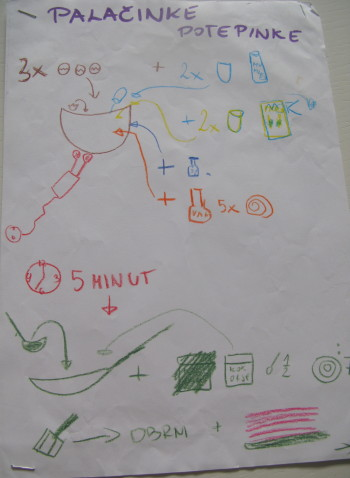 PALAČINKE
POTEPINKE
3x + 2x
+ 2x
+
+ 5x
5 MINUT
+ 1/2
→ OBRNI +